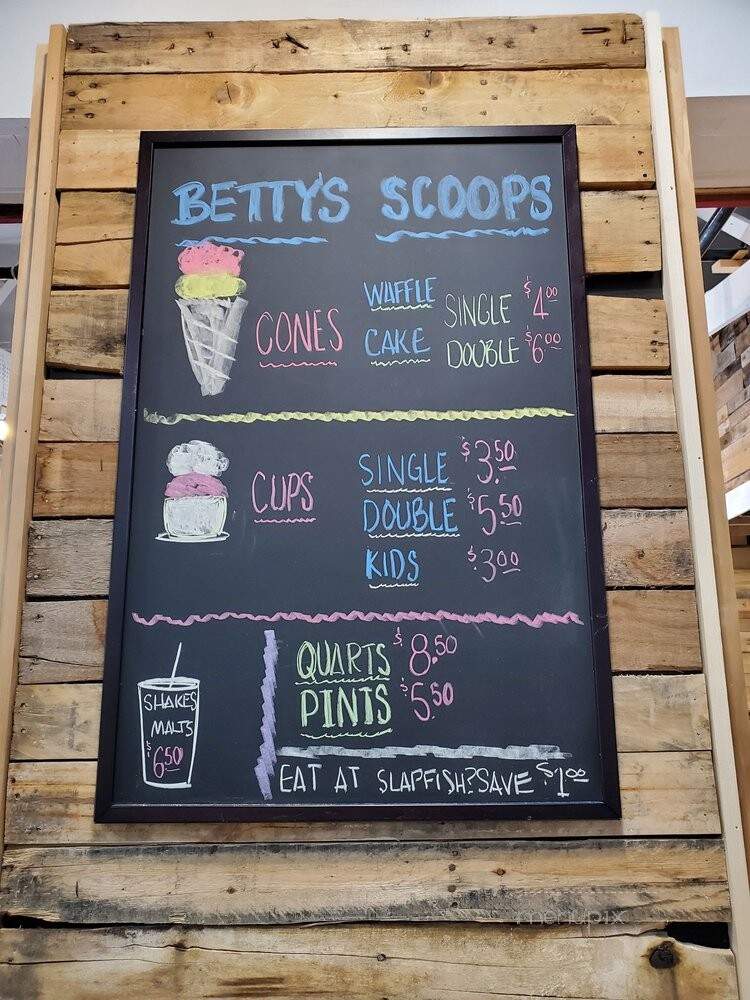 BETTY'S SCOOPS
CONES
WAFFLE
CAKE
SINGLE $4.00
DOUBLE $6.00
CUPS
SINGLE $3.50
DOUBLE $5.50
KIDS $3.00
SHAKES
MALTS
$6.50
QUARTS $8.50
PINTS $5.50
EAT AT SLAPFISH? SAVE $1.00
menupix